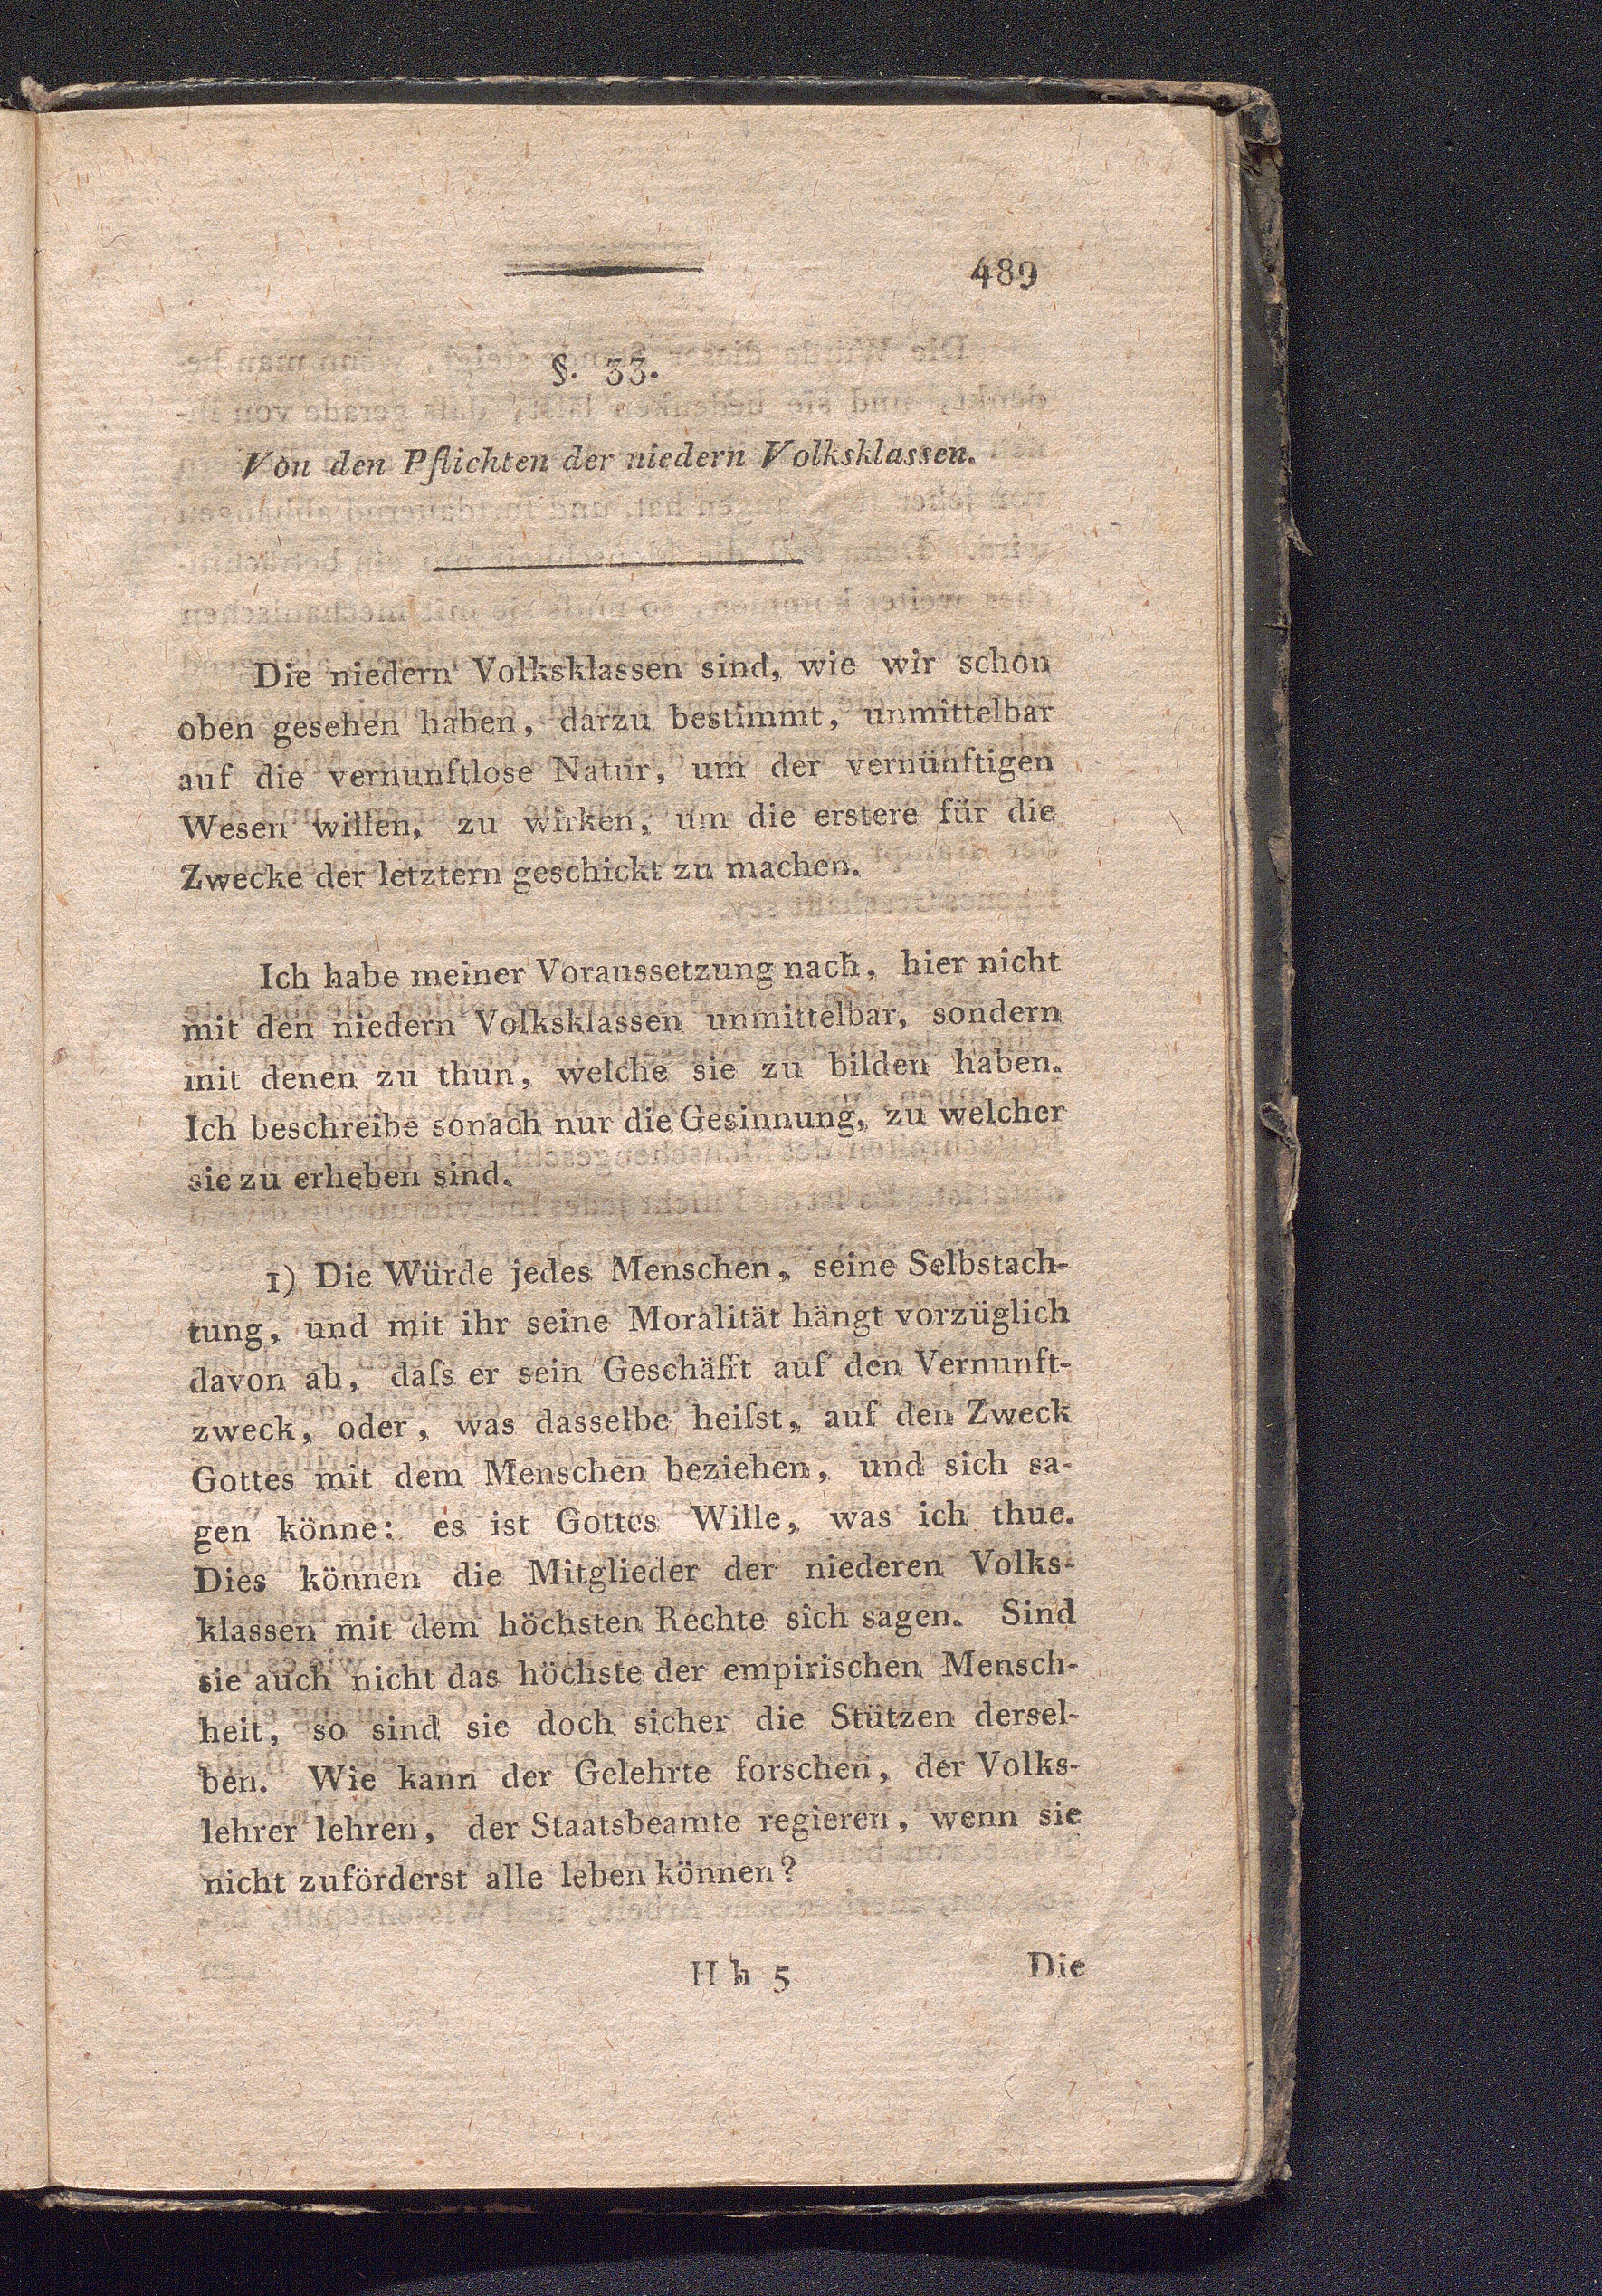 489
§. 33.
Von den Pflichten der niedern Volksklassen.
Die niedern Volksklassen sind, wie wir schon
oben gesehen haben, darzu bestimmt, unmittelbar
auf die vernunftlose Natur, um der vernünftigen
Wesen willen, zu wirken, um die erstere für die
Zwecke der letztern geschickt zu machen.
Ich habe meiner Voraussetzung nach, hier nicht
mit den niedern Volksklassen unmittelbar, sondern
mit denen zu thun, welche sie zu bilden haben.
Ich beschreibe sonach nur die Gesinnung, zu welcher
sie zu erheben sind.
1) Die Würde jedes Menschen, seine Selbstach-
tung, und mit ihr seine Moralität hängt vorzüglich
davon ab, daſs er sein Geschäfft auf den Vernunft-
zweck, oder, was dasselbe heiſst, auf den Zweck
Gottes mit dem Menschen beziehen, und sich sa-
gen könne: es ist Gottes Wille, was ich thue.
Dies können die Mitglieder der niederen Volks-
klassen mit dem höchsten Rechte sich sagen. Sind
sie auch nicht das höchste der empirischen Mensch-
heit, so sind sie doch sicher die Stützen dersel-
ben. Wie kann der Gelehrte forschen, der Volks-
lehrer lehren, der Staatsbeamte regieren, wenn sie
nicht zuförderst alle leben können?
H h 5 Die